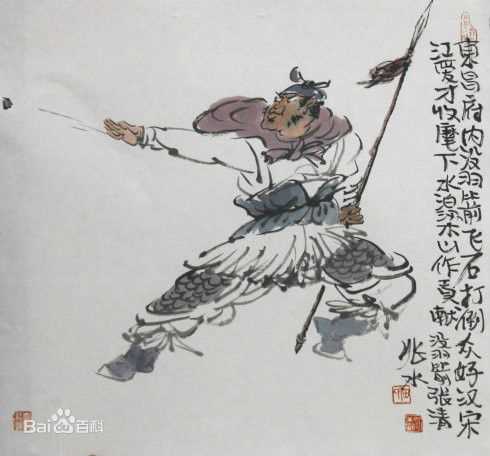 東昌府内没羽箭飞石打倒众好汉宋
江爱才收麾下水泊梁山作貢献没羽箭张清
兆水
Bai百科